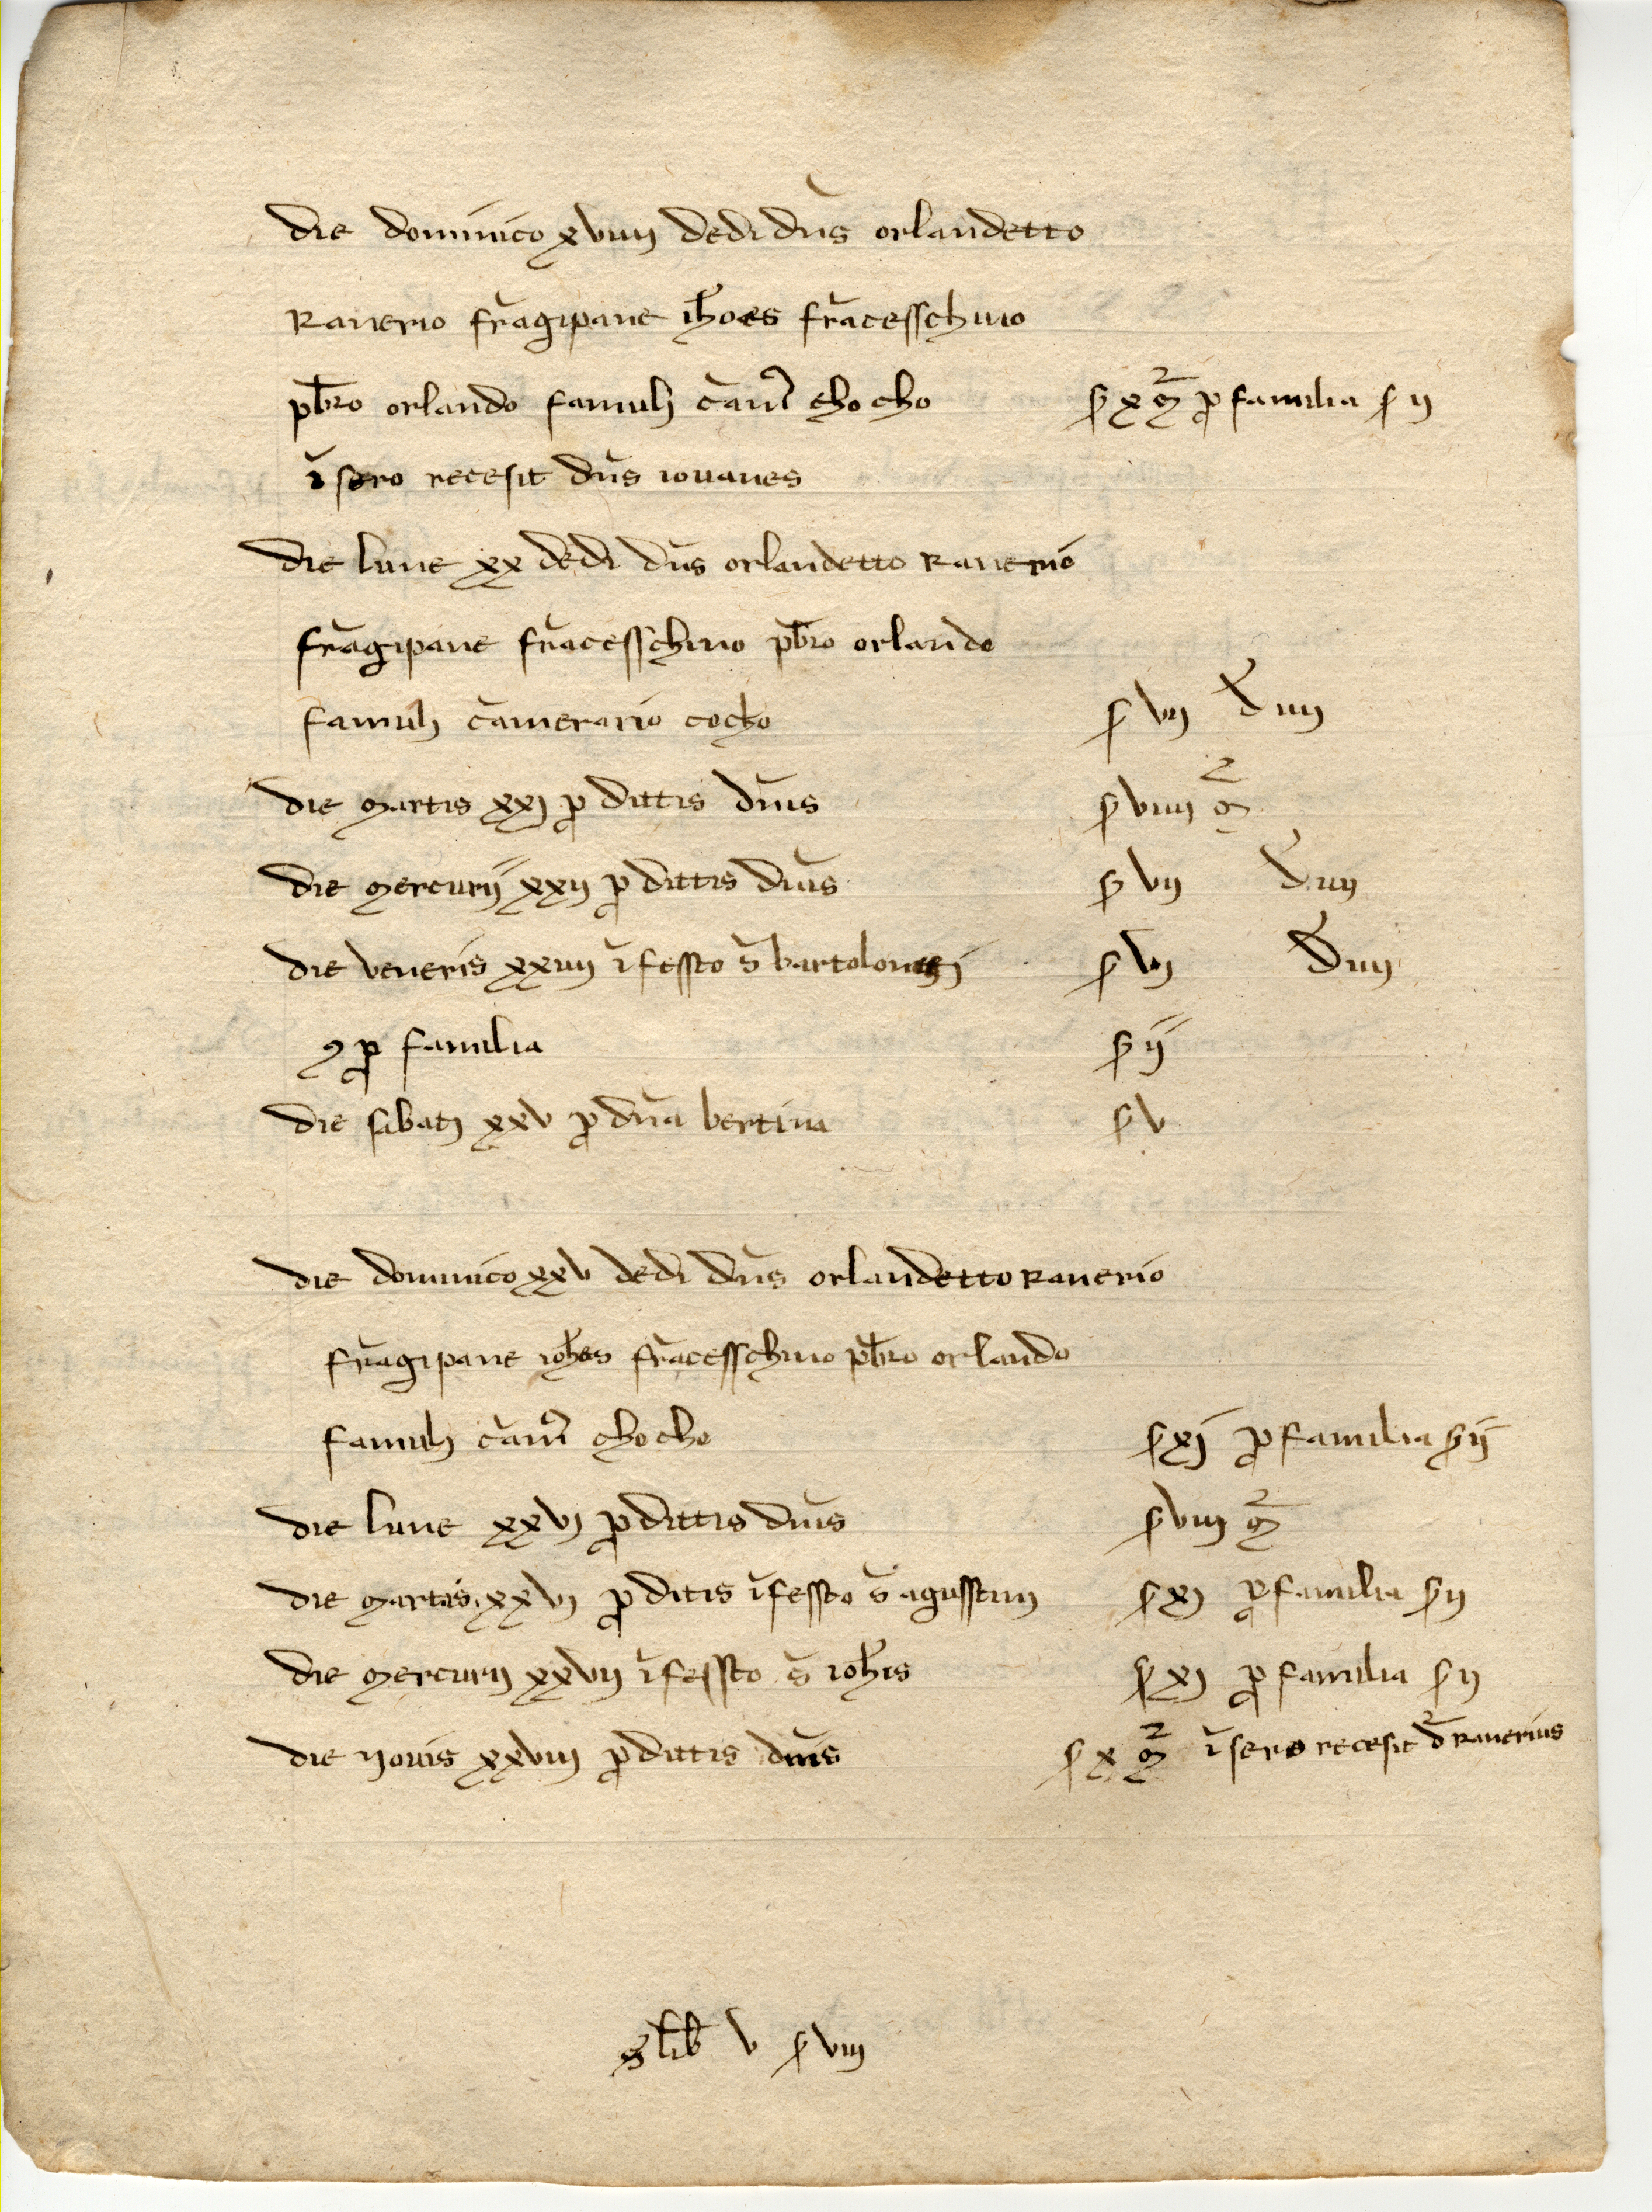 die dominico xviiij dedi dn̄s orlandetto
Ranerio frāgipane ih̄oes frācesschino
pb̄ro orlando famulj cām̄ chocho s x m̄2 p familia s ij
ī sero recesit dn̄s iovanes
die lune xx dedi dn̄s orlandetto Ranerio
frāgipane frācesschino pb̄ro orlando
famulj cāmerario cocho s vij d iiij
die martis xxj p dittis dn̄is s viiij m̄2
die mercurij xxij p dittis dn̄is s vij d iiij
die veneris xxiiij ī fessto s̄ bartolomej s vj d iiij
 p familia s ij
die sabatj xxv p dn̄a bertina s v
die dominico xxv dedi dn̄s orlandetto Ranerio
frāgipane ioh̄es frācesschino pb̄ro orlando
famulj cām̄ chocho s xj p familia s ij
die lune xxvj p dittis dn̄is s viiij m̄2
die martis xxvj p ditis ī fessto s̄ agusstinj s xj p familia s ij
die mercurij xxvij ī fessto s̄ ioh̄is s xj p familia s ij
die Jovis xxviij p dittis dn̄is s x m̄2 ī sero recesit d̄ Ranerius
s̄ lib̄ v s viij